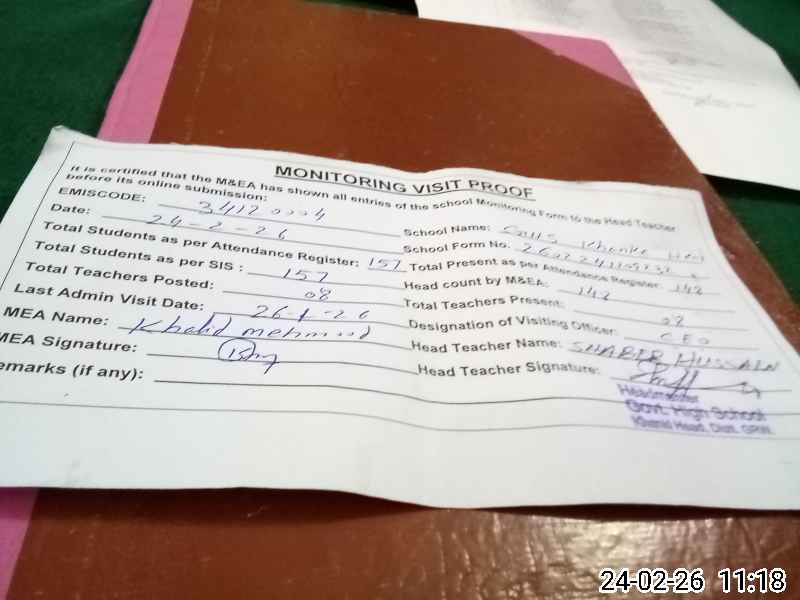 MONITORING VISIT PROOF
It is certified that the M&EA has shown all entries of the school Monitoring Form to the Head Teacher
before its online submission:
EMISCODE: 34120004
School Name: Khanki
Date: 24-2-26
School Form No.
Total Students as per Attendance Register: 157
Total Present as per Attendance Register: 142
Total Students as per SIS : 157
Head count by M&EA: 142
Total Teachers Posted: 08
Total Teachers Present: 08
Last Admin Visit Date: 26-1-26
Designation of Visiting Officer: CEO
MEA Name: Khalid mehmood
Head Teacher Name: SHABIR HUSSAIN
MEA Signature:
Head Teacher Signature:
emarks (if any):
Headmaster
Govt. High School
Khanki Head, Distt. GRW.
24-02-26 11:18